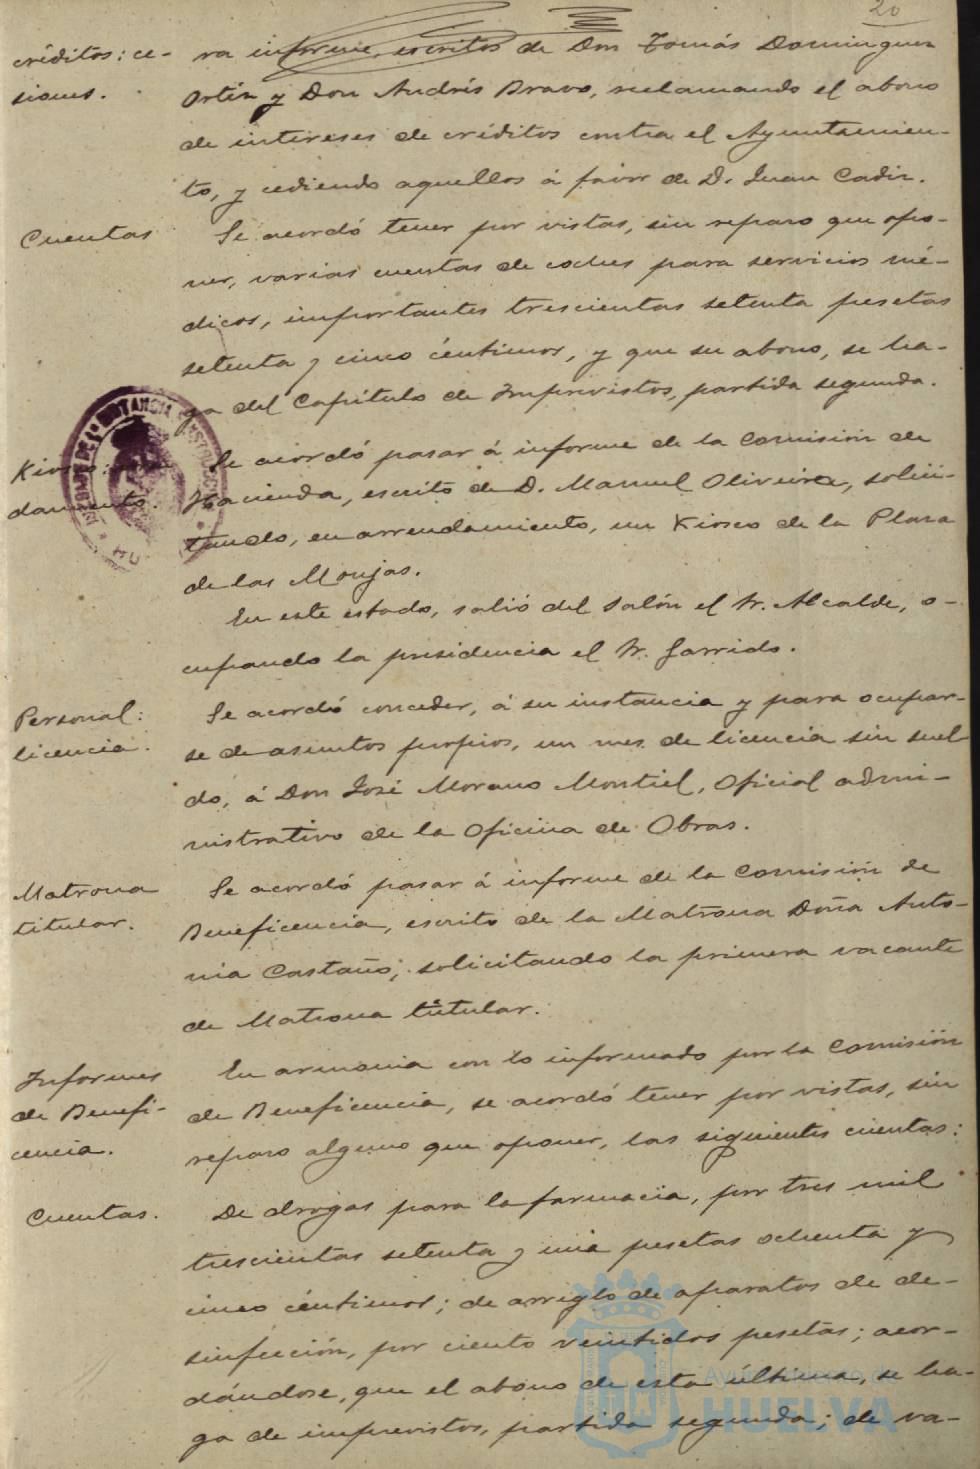 20
créditos: ce-
siones.
ra informe, escritos de Don Tomás Domínguez
Ortíz y Don Andrés Bravo, reclamando el abono
de intereses de créditos contra el Ayuntamien-
to, y cediendo aquellos á favor de D. Juan Cadiz.
Cuentas
Se acordó tener por vistas, sin reparo que opo-
ner, varias cuentas de coches para servicios mé-
dicos, importantes trescientas setenta pesetas
setenta y cinco céntimos, y que su abono, se ha-
ga del Capítulo de Imprevistos, partida segunda.
Kiosco:
damiento.
Se acordó pasar á informe de la Comisión de
Hacienda, escrito de D. Manuel Oliveira, solici-
tando, en arrendamiento, un Kiosco de la Plaza
de las Monjas.
En este estado, salió del salón el Sr. Alcalde, o-
cupando la presidencia el Sr. Garrido.
Personal:
licencia.
Se acordó conceder, á su instancia y para ocupar-
se de asuntos propios, un mes de licencia sin suel
do, á Don José Morano Montiel, Oficial admi-
nistrativo de la Oficina de Obras.
Matrona
titular.
Se acordó pasar á informe de la Comisión de
Beneficencia, escrito de la Matrona Doña Anto-
nia Castaño, solicitando la primera vacante
de Matrona titular.
Informes
de Benefi-
cencia.
En armonia con lo informado por la Comisión
de Beneficencia, se acordó tener por vistas, sin
reparo alguno que oponer, las siguientes cuentas:
Cuentas.
De drogas para la farmacia, por tres mil
trescientas setenta y una pesetas ochenta y
cinco céntimos; de arreglo de aparatos de de-
sinfección, por ciento veintidos pesetas; acor-
dándose, que el abono de esta última, se ha-
ga de imprevistos, partida segunda; de va-
Ayuntamiento de
HUELVA